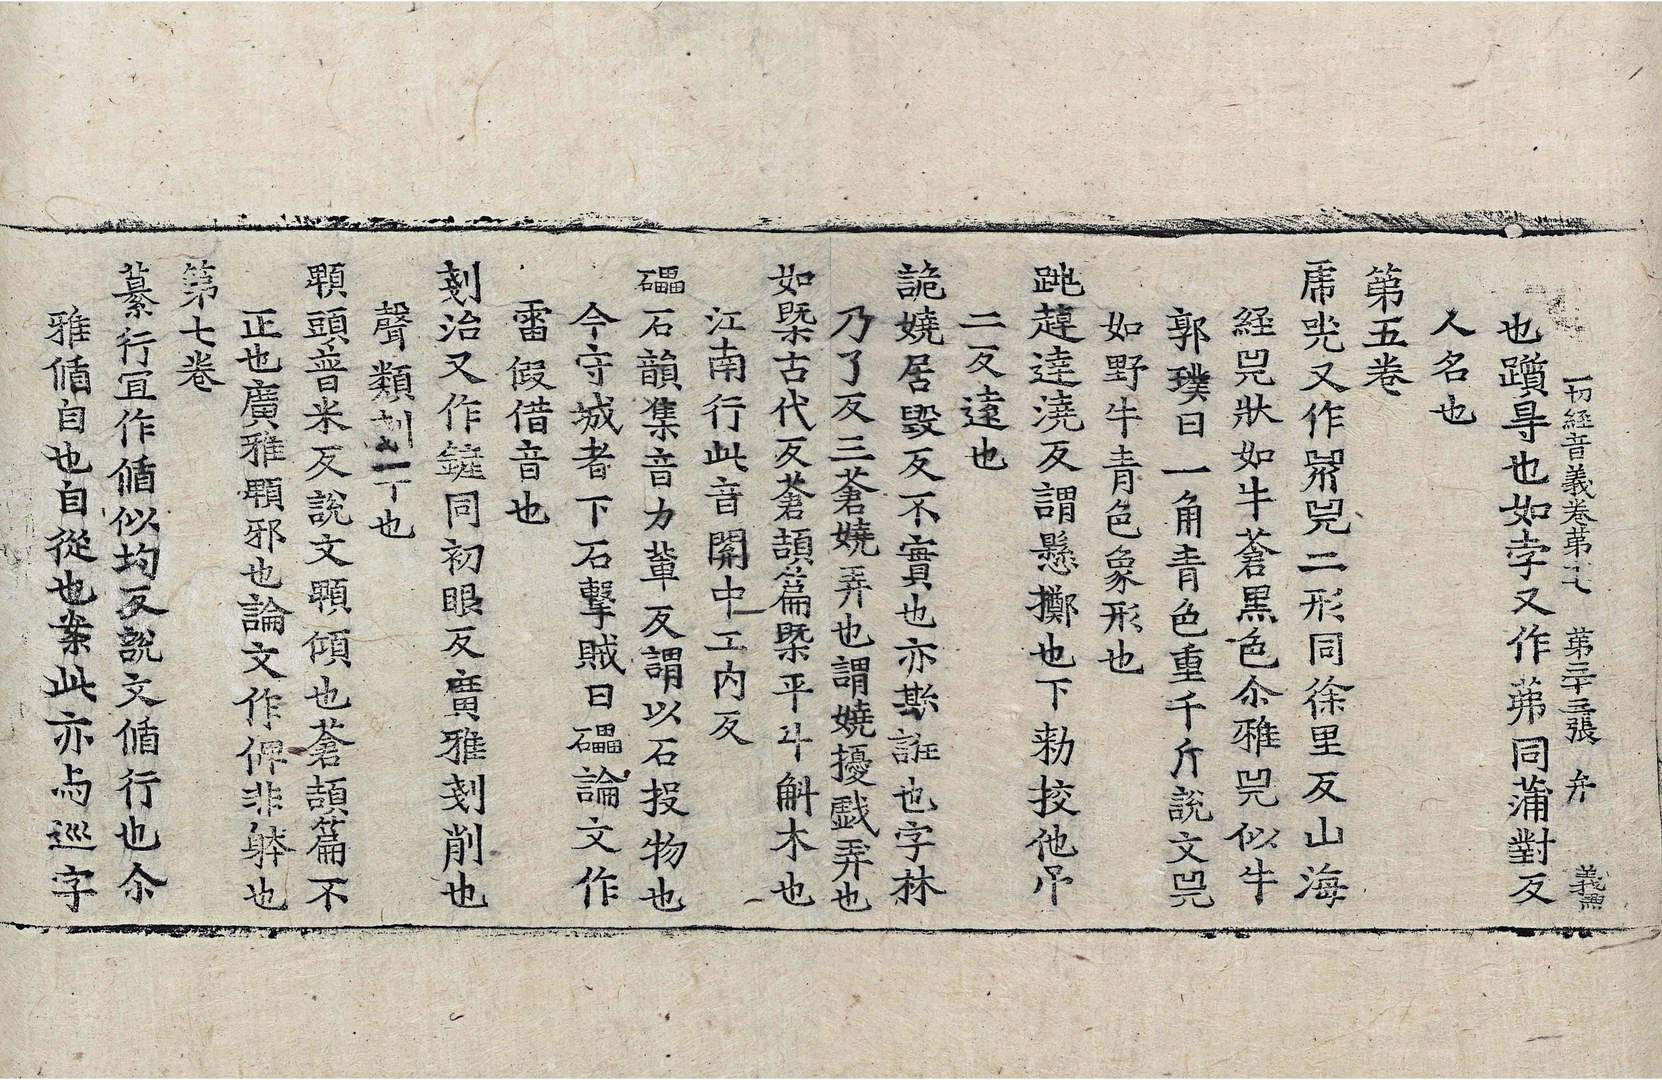 一切經音義卷第十七 第三十三張 弁 義
也躓㝵也如孛又作茀同蒲對反
人名也
第五卷
虎兕又作𠒅𠒃二形同徐里反山海
經𠒃狀如牛蒼黑色尒雅𠒃似牛
郭璞曰一角青色重千斤說文𠒃
如野牛青色象形也
跳䠧達澆反謂懸擲也下勑挍他吊
二反遠也
詭嬈居毀反不實也亦欺誑也字林
乃了反三蒼嬈弄也謂嬈擾戲弄也
如㮣古代反蒼頡篇㮣平斗斛木也
江南行此音關中工內反
礧石韻集音力輩反謂以石投物也
今守城者下石擊賊曰礧論文作
雷假借音也
剗治又作鏟同初眼反廣雅剗削也
聲類剗平也
顊頭普米反說文顊傾也蒼頡篇不
正也廣雅顊邪也論文作俾非躰也
第七卷
纂行宜作循似均反說文循行也尒
雅循自也自從也案此亦与巡字